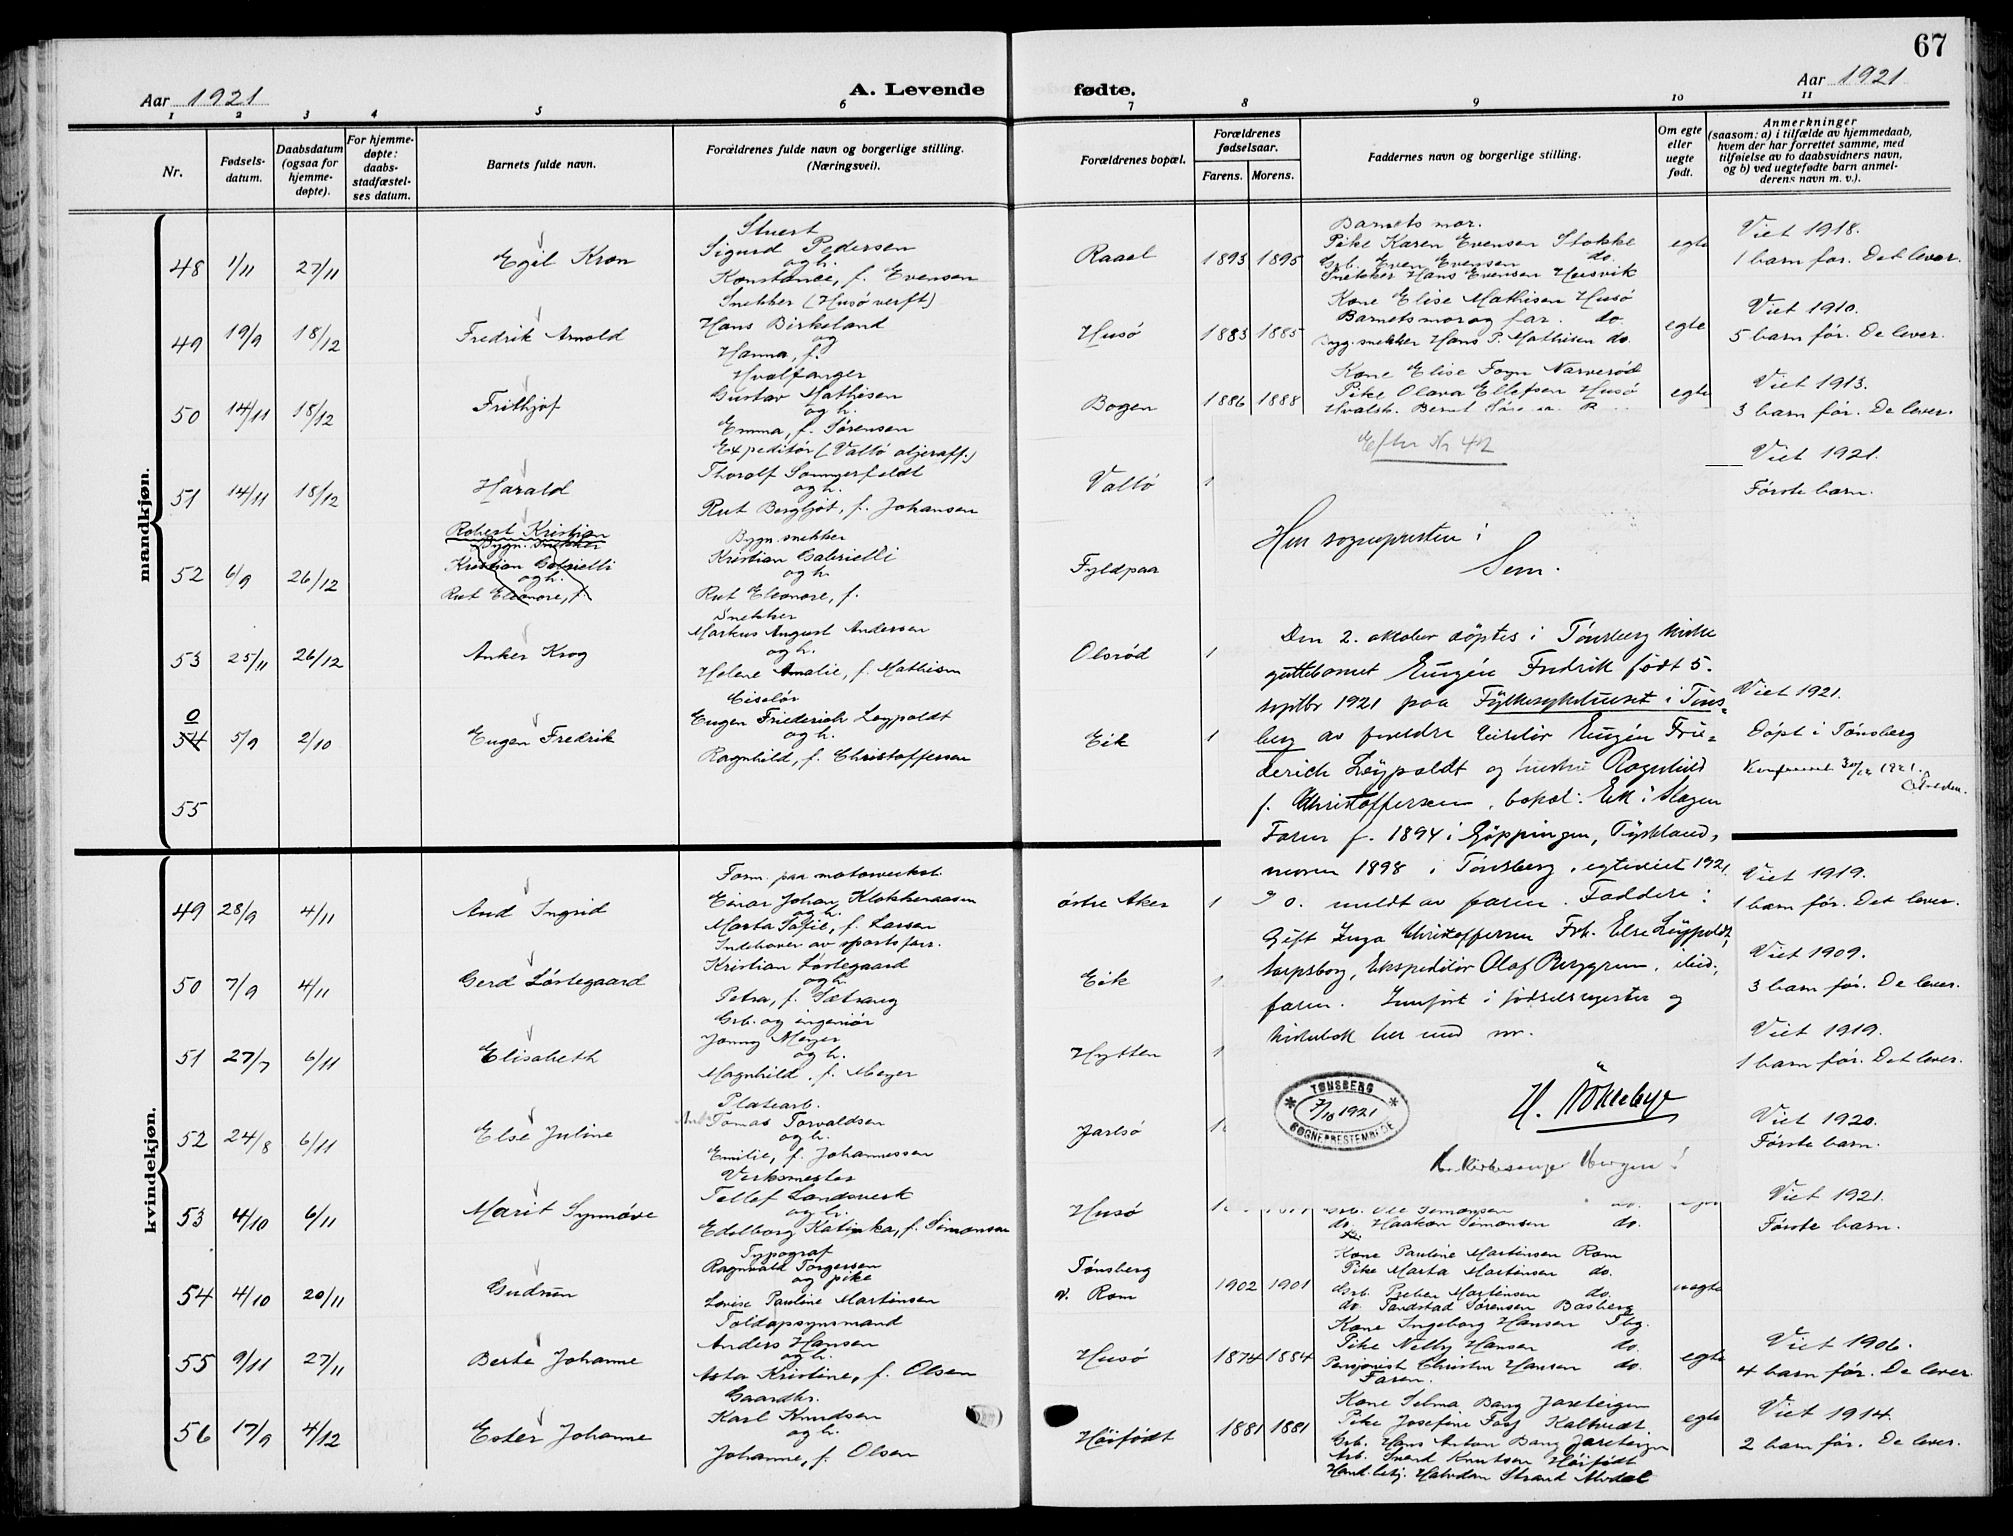 67
Aar 1921
A. Levende
fødte.
Aar 1921
1 2 3 4 5 6 7 8 9 10 11
Nr.
Fødsels-
datum.
Daabsdatum
(ogsaa for
hjemme-
døpte).
For hjemme-
døpte:
daabs-
stadfæstel-
ses datum.
Barnets fulde navn.
Forældrenes fulde navn og borgerlige stilling.
(Næringsvei).
Forældrenes bopæl.
Forældrenes
fødselsaar.
Farens. Morens.
Faddernes navn og borgerlige stilling.
Om egte
eller
uegte
født.
Anmerkninger
(saasom: a) i tilfælde av hjemmedaab,
hvem der har forrettet samme, med
tilføielse av to daabsvidners navn,
og b) ved uegtefødte barn anmel-
derens navn m. v.).
mandkjøn.
48 1/11 27/11 Egil Kron
Stuert
Sigurd Pedersen
og h.
Konstance, f. Evensen
Raael 1893 1895
Barnets mor.
Pike Karen Evensen Stokke
Grb. Even Evensen do.
Snekker Hans Evensen
egte
Viet 1918.
1 barn før. Det lever.
49 19/9 18/12 Fredrik Arnold
Snekker (Husø verft)
Hans Birkeland
og
Hanna, f.
Husø 1883 1885
Kone Elise Mathisen Husø
Barnets mor og far. do.
Byg. snekker Hans P. Mathisen do.
egte
Viet 1910.
5 barn før. De lever.
50 14/11 18/12 Frithjof
Hvalfanger
Gustav Mathisen
og h.
Emma, f. Sørensen
Bogen 1886 1888
Kone Elise Fogn Narverød
Pike Olava Ellefsen Husø
egte
Viet 1913.
3 barn før. De lever.
51 14/11 18/12 Harald
Expeditør (Vallø oljeraff.)
Thoralf Sommerfeldt
og h.
Rut Bergljot, f. Johansen
Vallø 1
Viet 1921.
Første barn.
52 6/9 26/12 Robert Kristian
Bygn. snekker
Kristian Gabrielli
og h.
Rut Eleonore, f.
Bygn. snekker
Kristian Gabrielli
og h.
Rut Eleonore, f.
Fyldpaa
53 25/11 26/12 Anker Krog
Snekker
Markus August Andersen
og h.
Helene Amalie, f. Mathisen
Olsrød 1
0
54 5/9 2/10 Eugen Fredrik
Ciselør
Eugen Friederich Leypoldt
og h.
Ragnhild, f. Christoffersen
Eik 1
Viet 1921.
Døpt i Tønsberg
55
Efter Nr 42
Hr. sognepresten i
Sem.
Den 2. oktober døptes i Tønsberg kirke
guttebarnet Eugén Fredrik født 5.
septbr 1921 paa Fylkesykehuset i Tøns-
berg av forældre Ciselør Eugén Frie-
derich Leÿpoldt og hustru Ragnhild
f. Christoffersen, bopæl: Eik i Slagen
Faren f. 1894 i Göppingen, Tÿskland,
moren 1898 i Tønsberg, egteviet 1921
meldt av faren. Faddere:
Gift Inga Christoffersen Frk. Else Leÿpoldt,
Sarpsborg, Ekspeditør Olaf Berggren, ibid.,
faren. Innført i fødselsregister og
kirkebok her med nr.
H. Økleby
TØNSBERG
7/10 1921
SOGNEPRESTEMBEDE
kvindekjøn.
49 28/9 4/11 Aud Ingrid
Form. paa motorverkst.
Einar Johan Klokkeraasen
og h.
Marta Sofie, f. Larsen
østre Aker 1
Viet 1919.
1 barn før. Det lever.
50 7/9 4/11 Gerd Løstegaard
Indehaver av sportsforr.
Kristian Løstegaard
og h.
Petra, f. Sætrang
Eik 1
Viet 1909.
3 barn før. De lever.
51 27/7 6/11 Elisabeth
Grb. og ingeniør
Jonny Meyer
og h.
Magnhild, f. Meyer
Hytten 1
Viet 1919.
1 barn før. Det lever.
52 24/8 6/11 Else Juline
Platearb.
Tomas Torvaldsen
og h.
Emilie, f. Johannessen
Jarlsø 1
Viet 1920.
Første barn.
53 4/10 6/11 Marit Synnøve
Verksmester
Tellef Landsverk
og h.
Edelborg Katinka, f. Simonsen
Husø
Grb. Ole Simonsen
do. Haakon Simonsen do.
Viet 1921.
Første barn.
54 4/10 20/11 Gudrun
Typograf
Ragnvald Torgersen
og pike
Lovise Pauline Martinsen
Tønsberg
v. Rom 1902 1901
Kone Pauline Martinsen Rom
Pike Marta Martinsen do.
Grb. Preben Martinsen do.
do. Tandstad Sørensen Basberg
uegte
55 9/11 27/11 Berte Johanne
Toldopsynsmand
Anders Hansen
og h.
Asta Kristine, f. Olsen
Husø 1874 1884
Kone Ingeborg Hansen Tbg.
Pike Nelly Hansen do.
Pensjonist Christen Hansen do.
Faren.
egte
Viet 1906.
4 barn før. De lever.
56 17/9 4/12 Ester Johanne
Gaardbr.
Karl Knudsen
og h.
Johanne, f. Olsen
Høifødt 1881 1881
Kone Selma Bang Jareteigen
Pike Josefine Foss Kaltvedt
Grb. Hans Anton Bang Jareteigen
Arb. Svend Knutsen Høifødt
Halvdan Strand
egte
Viet 1914.
2 barn før. De lever.